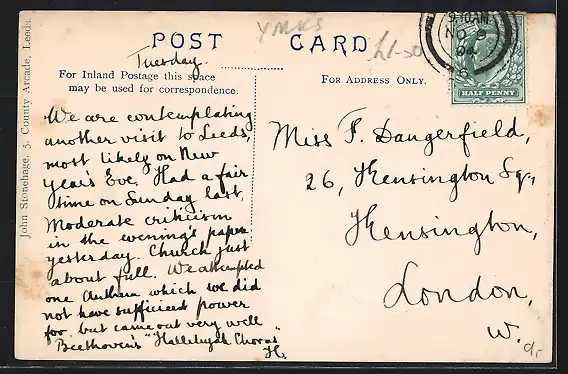 YRKS
POST CARD
£1-50
9.30AM
NO 8
04
HALF PENNY
For Inland Postage this space
may be used for correspondence.
For Address Only.
John Stonehage, 5, County Arcade, Leeds.
Tuesday.
We are contemplating
another visit to Leeds,
most likely on New
Year's Eve. Had a fair
time on Sunday last,
Moderate criticism
in the evening's paper
yesterday. Church just
about full. We attempted
one Anthem which we did
not have sufficient power
for, but came out very well
Beethoven's "Hallelujah Chorus"
H.
Miss F. Dangerfield,
26, Kensington Sq.,
Kensington,
London,
W.